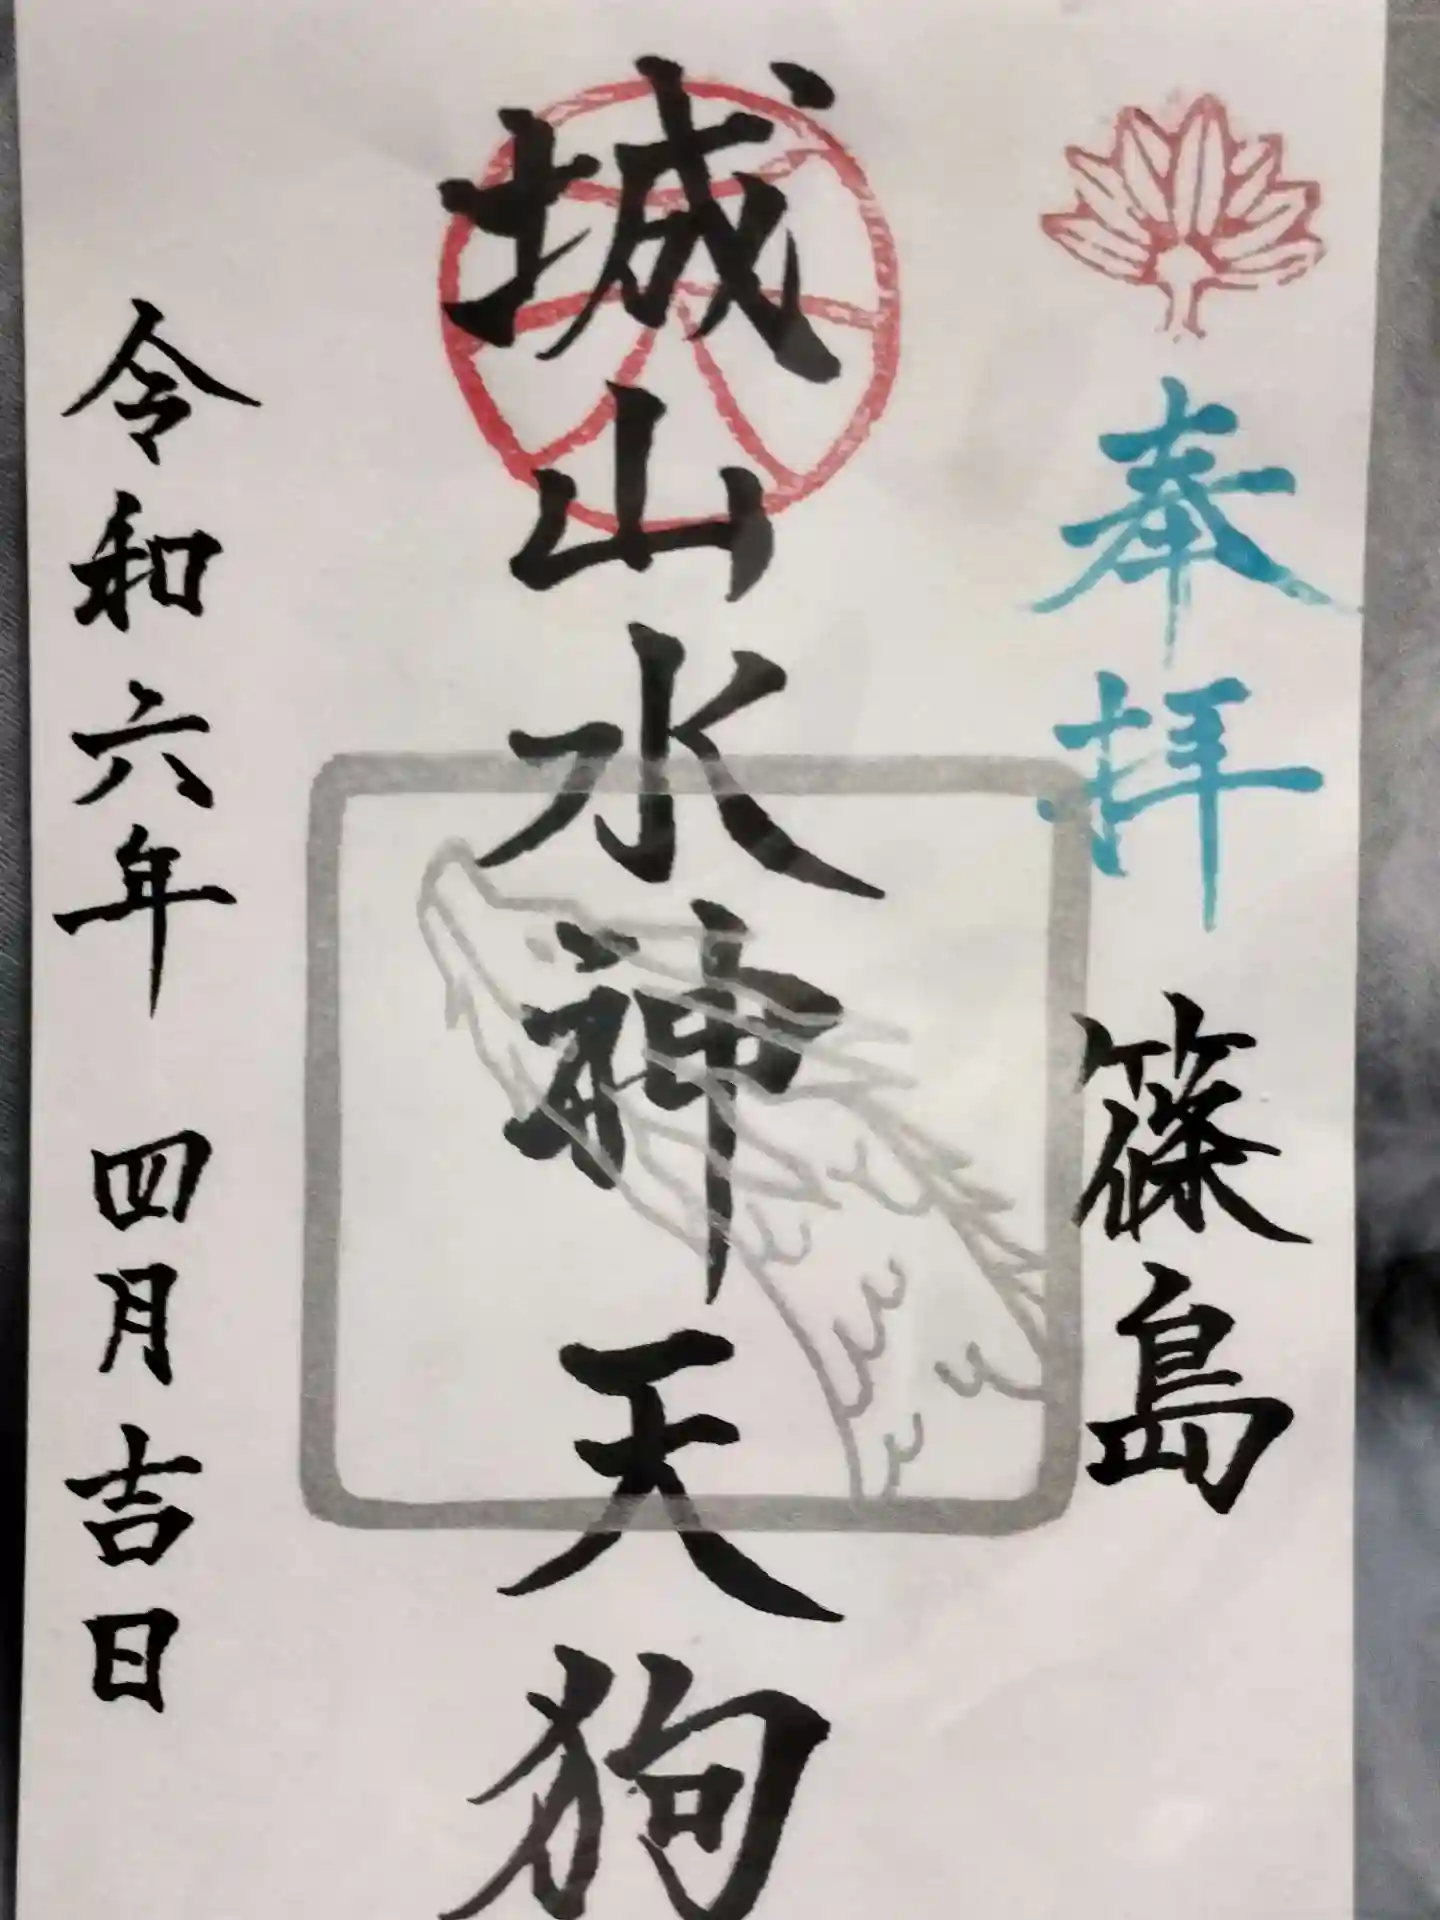 奉拝
篠島
城山水神天狗
令和六年 四月吉日